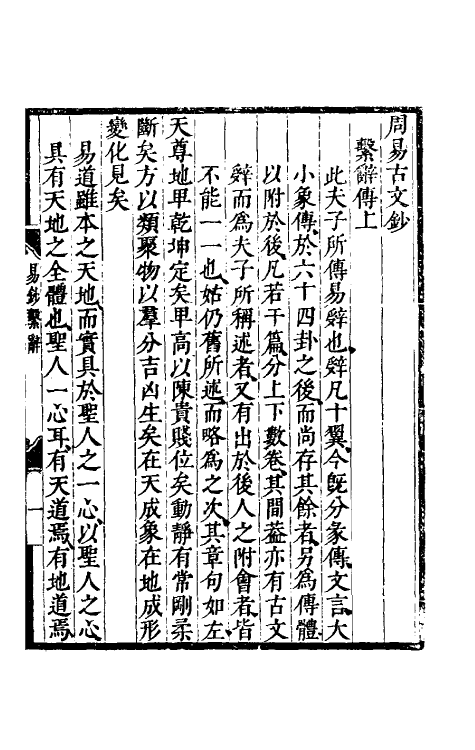 周易古文鈔
繫辭傳上
此夫子所傳易辤也辤凡十翼今旣分彖傳文言大
小象傳於六十四卦之後而尚存其餘者另為傳體
以附於後凡若干篇分上下數卷其間葢亦有古文
辤而為夫子所稱述者又有出於後人之附會者皆
不能一一也姑仍舊所述而略為之次其章句如左
天尊地卑乾坤定矣卑高以陳貴賤位矣動靜有常剛柔
斷矣方以類聚物以羣分吉凶生矣在天成象在地成形
變化見矣
易道雖本之天地而實具於聖人之一心以聖人之心
具有天地之全體也聖人一心耳有天道焉有地道焉
易鈔繫辭
一